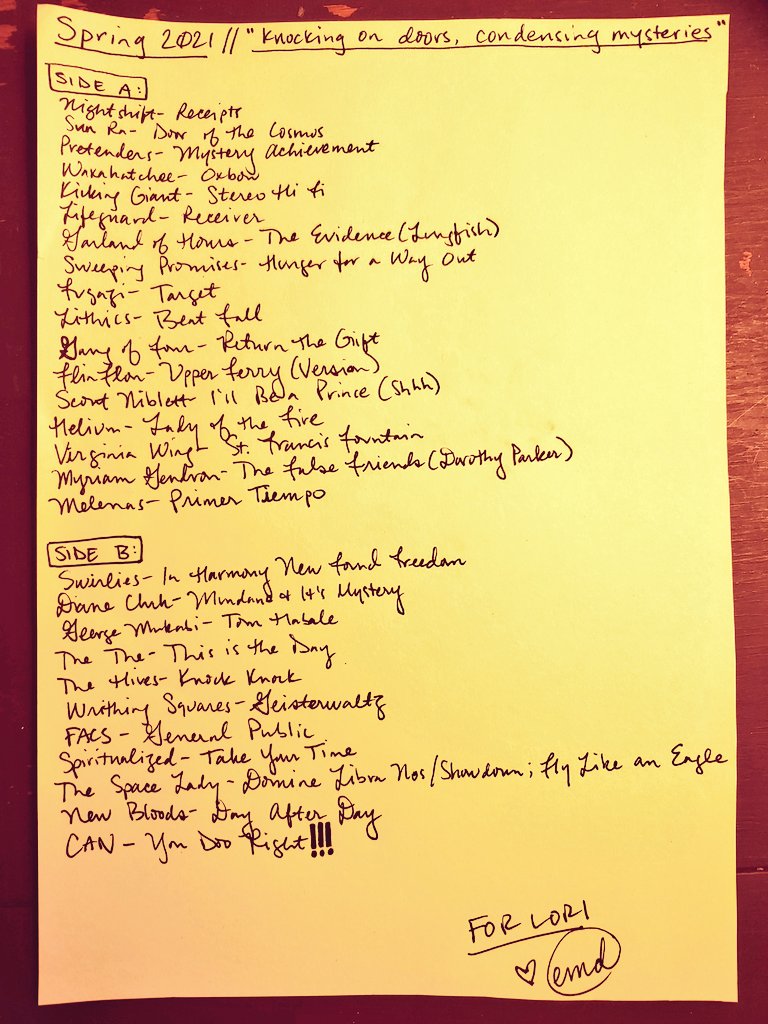 Spring 2021 // "Knocking on doors, condensing mysteries"
SIDE A:
Nightshift - Receipts
Sun Ra - Door of the Cosmos
Pretenders - Mystery Achievement
Waxahatchee - Oxbow
Kicking Giant - Stereo Hi Fi
Lifeguard - Receiver
Garland of Hours - The Evidence (Lungfish)
Sweeping Promises - Hunger for a Way Out
Fugazi - Target
Lithics - Beat Fall
Gang of Four - Return The Gift
Flin Flon - Upper Ferry (Version)
Scout Niblett - I'll Be a Prince (Shhh)
Helium - Lady of the Fire
Virginia Wing - St. Francis Fountain
Myriam Gendron - The False Friends (Dorothy Parker)
Melenas - Primer Tiempo
SIDE B:
Swirlies - In Harmony New Found Freedom
Diane Cluck - Mundand & It's Mystery
George Mukabi - Tom Habale
The The - This is the Day
The Hives - Knock Knock
Writhing Squares - Geisterwaltz
FACS - General Public
Spiritualized - Take Your Time
The Space Lady - Domine Libra Nos / Showdown; Fly Like an Eagle
New Bloods - Day After Day
CAN - You Doo Right!!!
FOR LORI
♡ emd